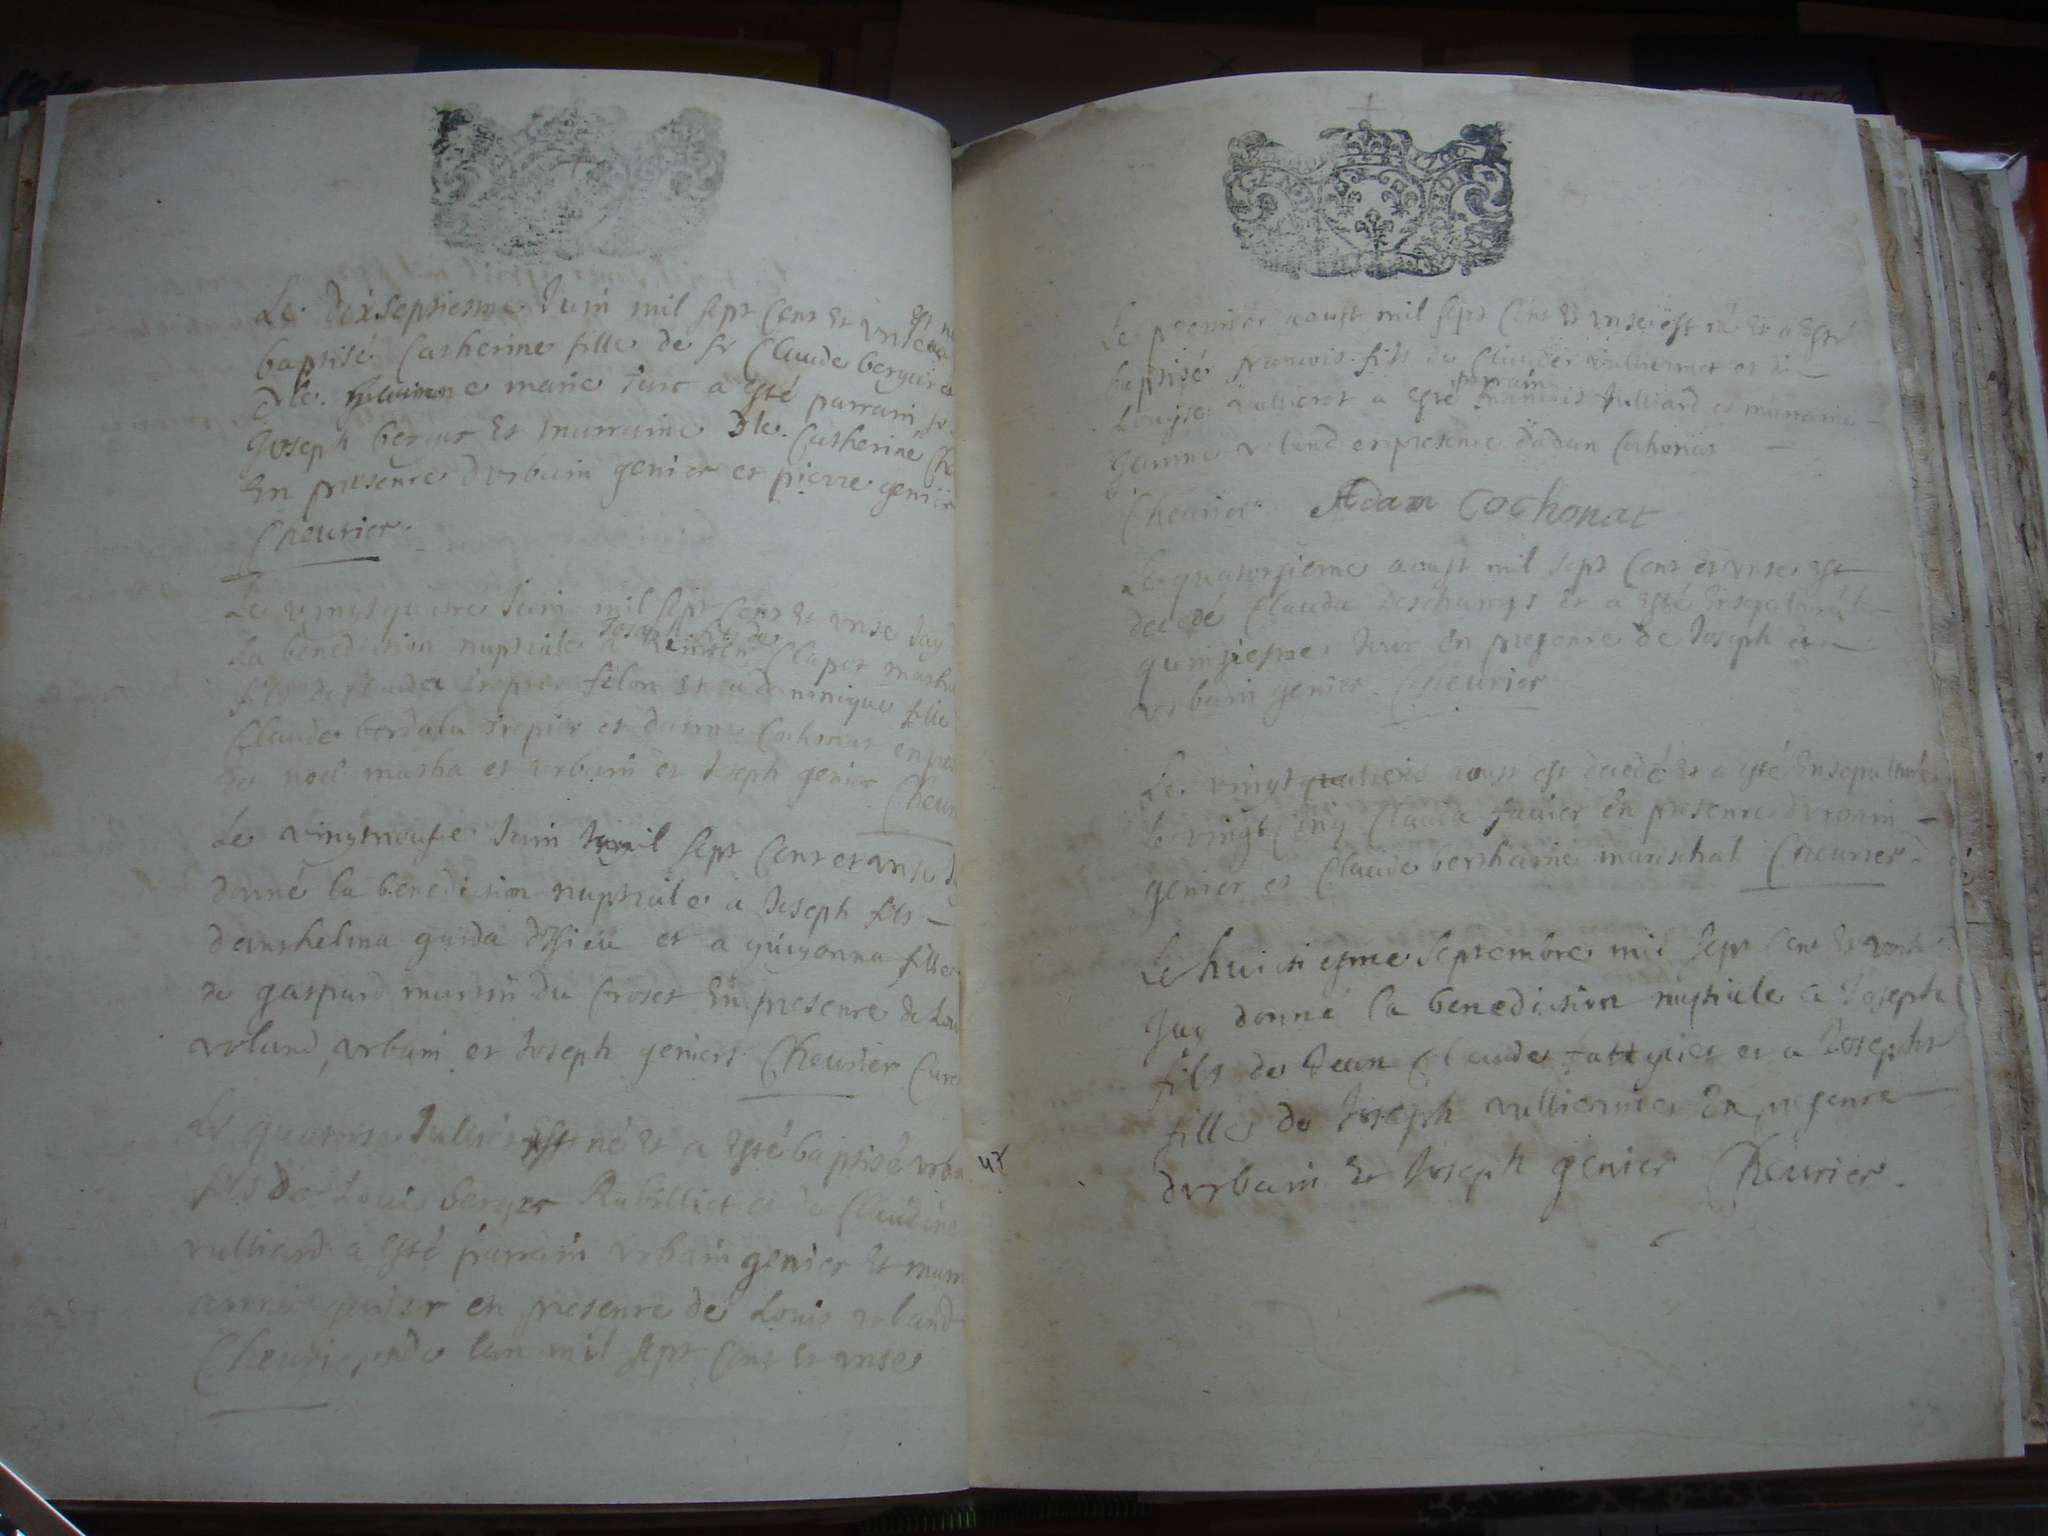 Le dixseptiesme Juin mil sept Cens Et unse Est né
baptisé Catherine fille de sr Claude berger et
dle. marie turc a Esté parrain sr.
Joseph berger Et marraine Dle. Catherine
En presence durbain genier et pierre genier
Cheurier.
Le vingtquatre Juin mil sept Cens Et unse Jay
La benediction nuptiale a Joseph
fils de Claude filon Et a dominique fille
Claude et Cochonat en
de noel masha et urbain et Joseph genier Cheur
Le vingtneufe Juin mil sept Cens et unse
donné la benediction nuptiale a Joseph fils
danthelma et a guigonna fille
de gaspard martin du Croset En presence de Lou
voland urbain et Joseph geniers Cheurier Cure
Le quatorse Juillet Est né Et a Esté baptisé urba
fils de Louis berger Rabilliet et de Claudine
vulliard a Esté parrain urbain genier Et marr
genier en presence de Louis voland
Cheurier lan mil sept Cens Et unse
Le premier aoust mil sept Cens Et unse est né Et a Esté
baptisé francois fils de Claude vulliermet et de
Louyse vullierot a Esté parrain francois Julliard et marraine
voland en presence dadan Cochonat
Cheurier Adam Cochonat
Le quatorsieme aoust mil sept Cens et unse est
decedé Claude Deschamps Et a Esté Ensepulturé le
quinsiesme Jour En presence de Joseph et
urbain genier Cheurier
Le vingt aoust est decedé Et a esté Ensepulturé
Le vingt Cinq Claude fauier En presence durbain
genier et Claude bertharue mareschal Cheurier
Le huictiesme Septembre mil sept Cens Et unse
Jay donné la benediction nuptiale a Joseph
fils de Jean Claude et a Josephte
fille de Joseph vulliermet En presence
durbain Et Joseph genier Cheurier.